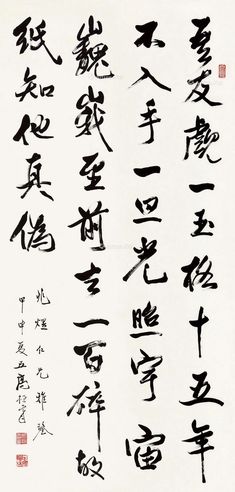 吾友覷一玉十五年
不入手一旦光照宇宙
巍峩至前去一百碎故
紙知他真偽
仁兄雅鑒
甲申夏五